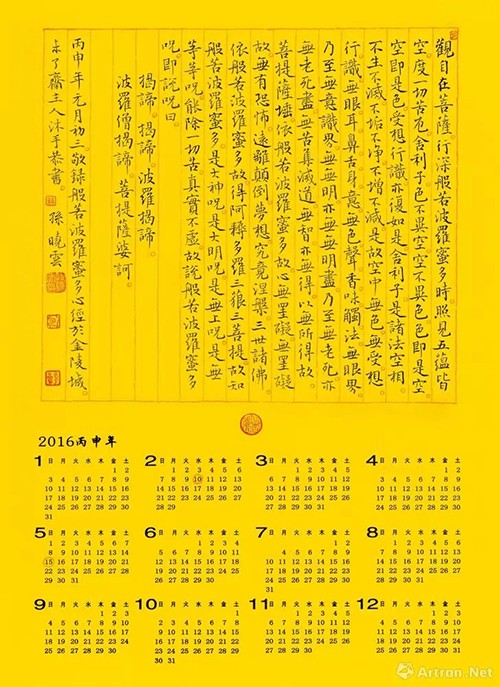 觀自在菩薩行深般若波羅蜜多時照見五蘊皆
空度一切苦厄舍利子色不異空空不異色色即是空
空即是色受想行識亦復如是舍利子是諸法空相
不生不滅不垢不淨不增不減是故空中無色無受想
行識無眼耳鼻舌身意無色聲香味觸法無眼界
乃至無意識界無無明亦無無明盡乃至無老死亦
無老死盡無苦集滅道無智亦無得以無所得故
菩提薩埵依般若波羅蜜多故心無罣礙無罣礙
故無有恐怖遠離顛倒夢想究竟涅槃三世諸佛
依般若波羅蜜多故得阿耨多羅三藐三菩提故知
般若波羅蜜多是大神呪是大明呪是無上呪是無
等等呪能除一切苦真實不虛故說般若波羅蜜多
呪即說呪曰
揭諦 揭諦 波羅揭諦
波羅僧揭諦 菩提薩婆訶
丙申年元月初三敬録般若波羅蜜多心經於金陵城
未了齋主人沐手恭書 孫曉雲
2016丙申年
1 日 月 火 水 木 金 土
1 2
3 4 5 6 7 8 9
10 11 12 13 14 15 16
17 18 19 20 21 22 23
24 25 26 27 28 29 30
31
2 日 月 火 水 木 金 土
1 2 3 4 5 6
7 8 9 10 11 12 13
14 15 16 17 18 19 20
21 22 23 24 25 26 27
28 29
3 日 月 火 水 木 金 土
1 2 3 4 5
6 7 8 9 10 11 12
13 14 15 16 17 18 19
20 21 22 23 24 25 26
27 28 29 30 31
4 日 月 火 水 木 金 土
1 2
3 4 5 6 7 8 9
10 11 12 13 14 15 16
17 18 19 20 21 22 23
24 25 26 27 28 29 30
5 日 月 火 水 木 金 土
1 2 3 4 5 6 7
8 9 10 11 12 13 14
15 16 17 18 19 20 21
22 23 24 25 26 27 28
29 30 31
6 日 月 火 水 木 金 土
1 2 3 4
5 6 7 8 9 10 11
12 13 14 15 16 17 18
19 20 21 22 23 24 25
26 27 28 29 30
7 日 月 火 水 木 金 土
1 2
3 4 5 6 7 8 9
10 11 12 13 14 15 16
17 18 19 20 21 22 23
24 25 26 27 28 29 30
31
8 日 月 火 水 木 金 土
1 2 3 4 5 6
7 8 9 10 11 12 13
14 15 16 17 18 19 20
21 22 23 24 25 26 27
28 29 30 31
9 日 月 火 水 木 金 土
1 2 3
4 5 6 7 8 9 10
11 12 13 14 15 16 17
18 19 20 21 22 23 24
25 26 27 28 29 30
10 日 月 火 水 木 金 土
1
2 3 4 5 6 7 8
9 10 11 12 13 14 15
16 17 18 19 20 21 22
23 24 25 26 27 28 29
30 31
11 日 月 火 水 木 金 土
1 2 3 4 5
6 7 8 9 10 11 12
13 14 15 16 17 18 19
20 21 22 23 24 25 26
27 28 29 30
12 日 月 火 水 木 金 土
1 2 3
4 5 6 7 8 9 10
11 12 13 14 15 16 17
18 19 20 21 22 23 24
25 26 27 28 29 30 31
Artron.Net